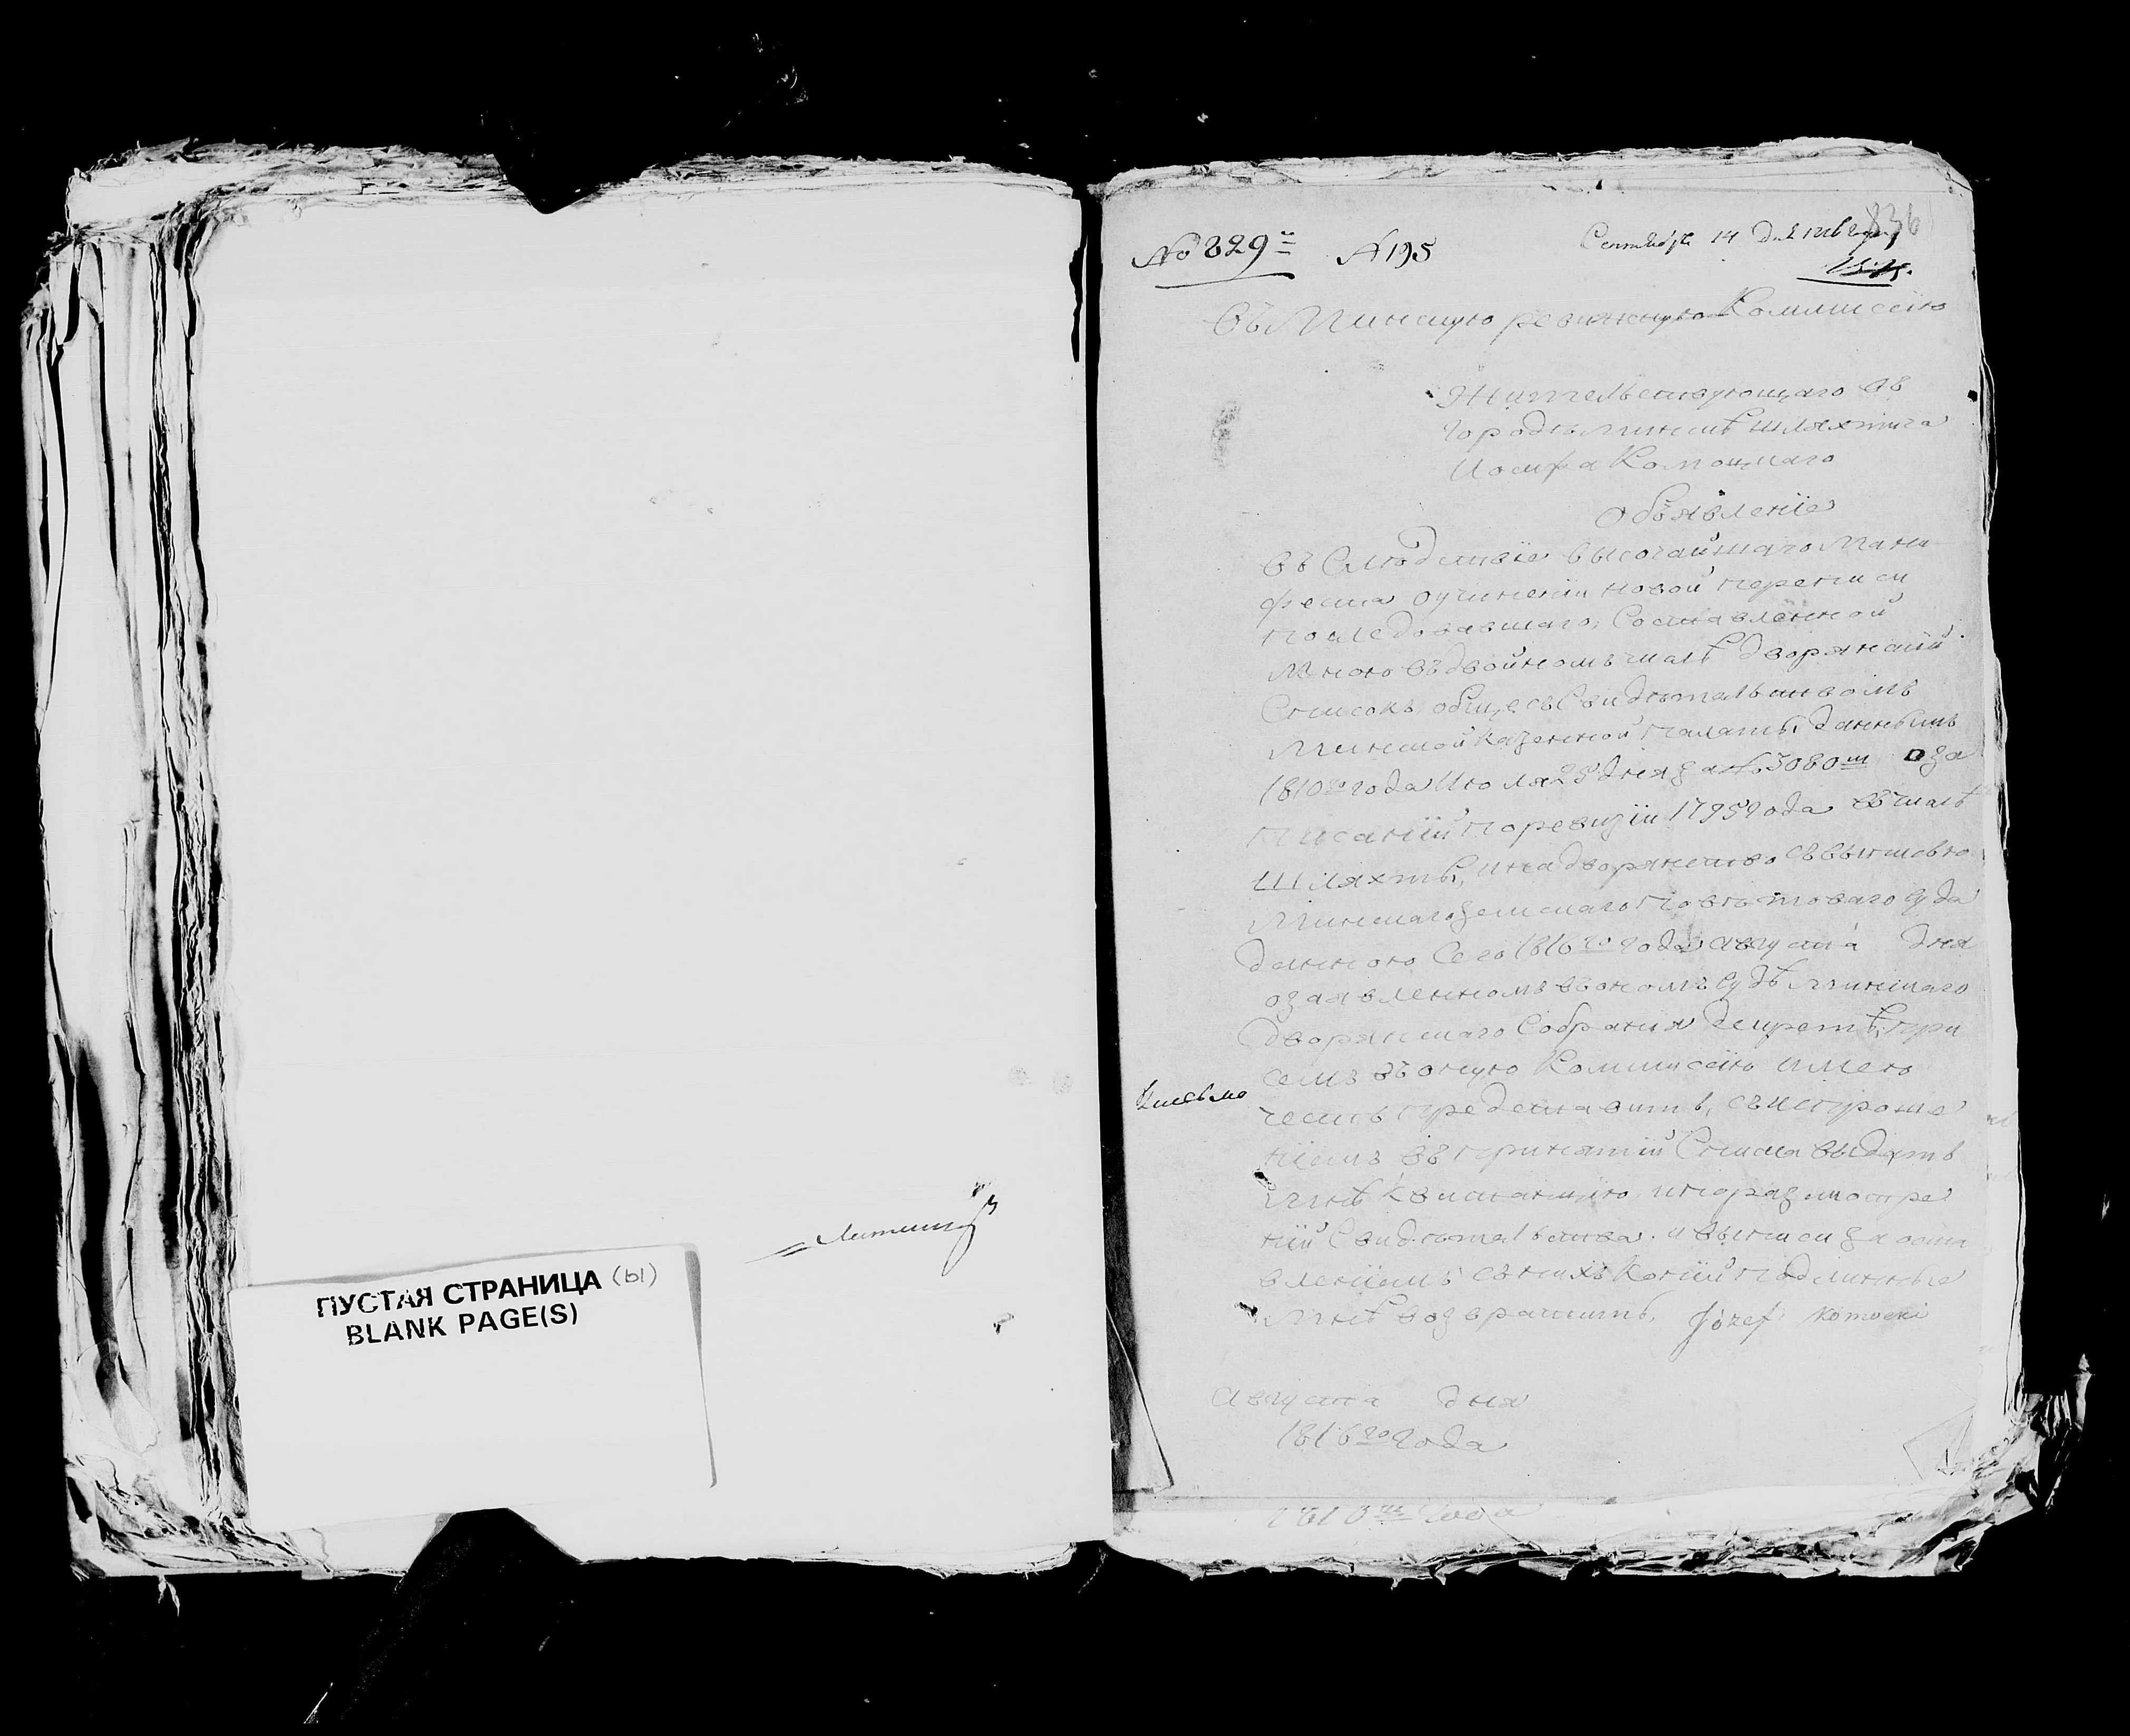 ПУСТАЯ СТРАНИЦА (ы)
BLANK PAGE(S)
№ 829й № 195
836
Сентября 14 Дня 1816 года
Въ Минскую ревизскую Коммисѣю
Жительствующаго въ
городѣ Минскѣ шляхтича
Иосифа Комоцкаго
Объявленіе
Въ Слѣдствіе высочайшаго Мани
феста о учиненіи новой переписи
последовавшаго, Составленной
Мною въ двойномъ числѣ дворянскій
Списокъ обще съ Свидѣтельствомъ
Минской казенной палаты, даннымъ
1810го года Июля 28 дня за № 3080м о за
писаніи по ревизіи 1795 года въ числѣ
Шляхты, и на дворянство съ выписью
Минскаго земскаго Повѣтоваго суда
данною Сего 1816го года августа дня
о заявленномъ въ ономъ судѣ Минскаго
Дворянскаго Собрания декретѣ, при
семъ въ оную Коммисѣю имею
честь представить, съ испроше
ніемъ въ принятіи Списка выдать
Мнѣ квитанцію, и по разсмотре
ніи Свидѣтельства и выписи за оста
вленіемъ съ нихъ Копій подлинные
Мнѣ возвратить, Józef Komocki
Августа дня
1816го года
1816го года